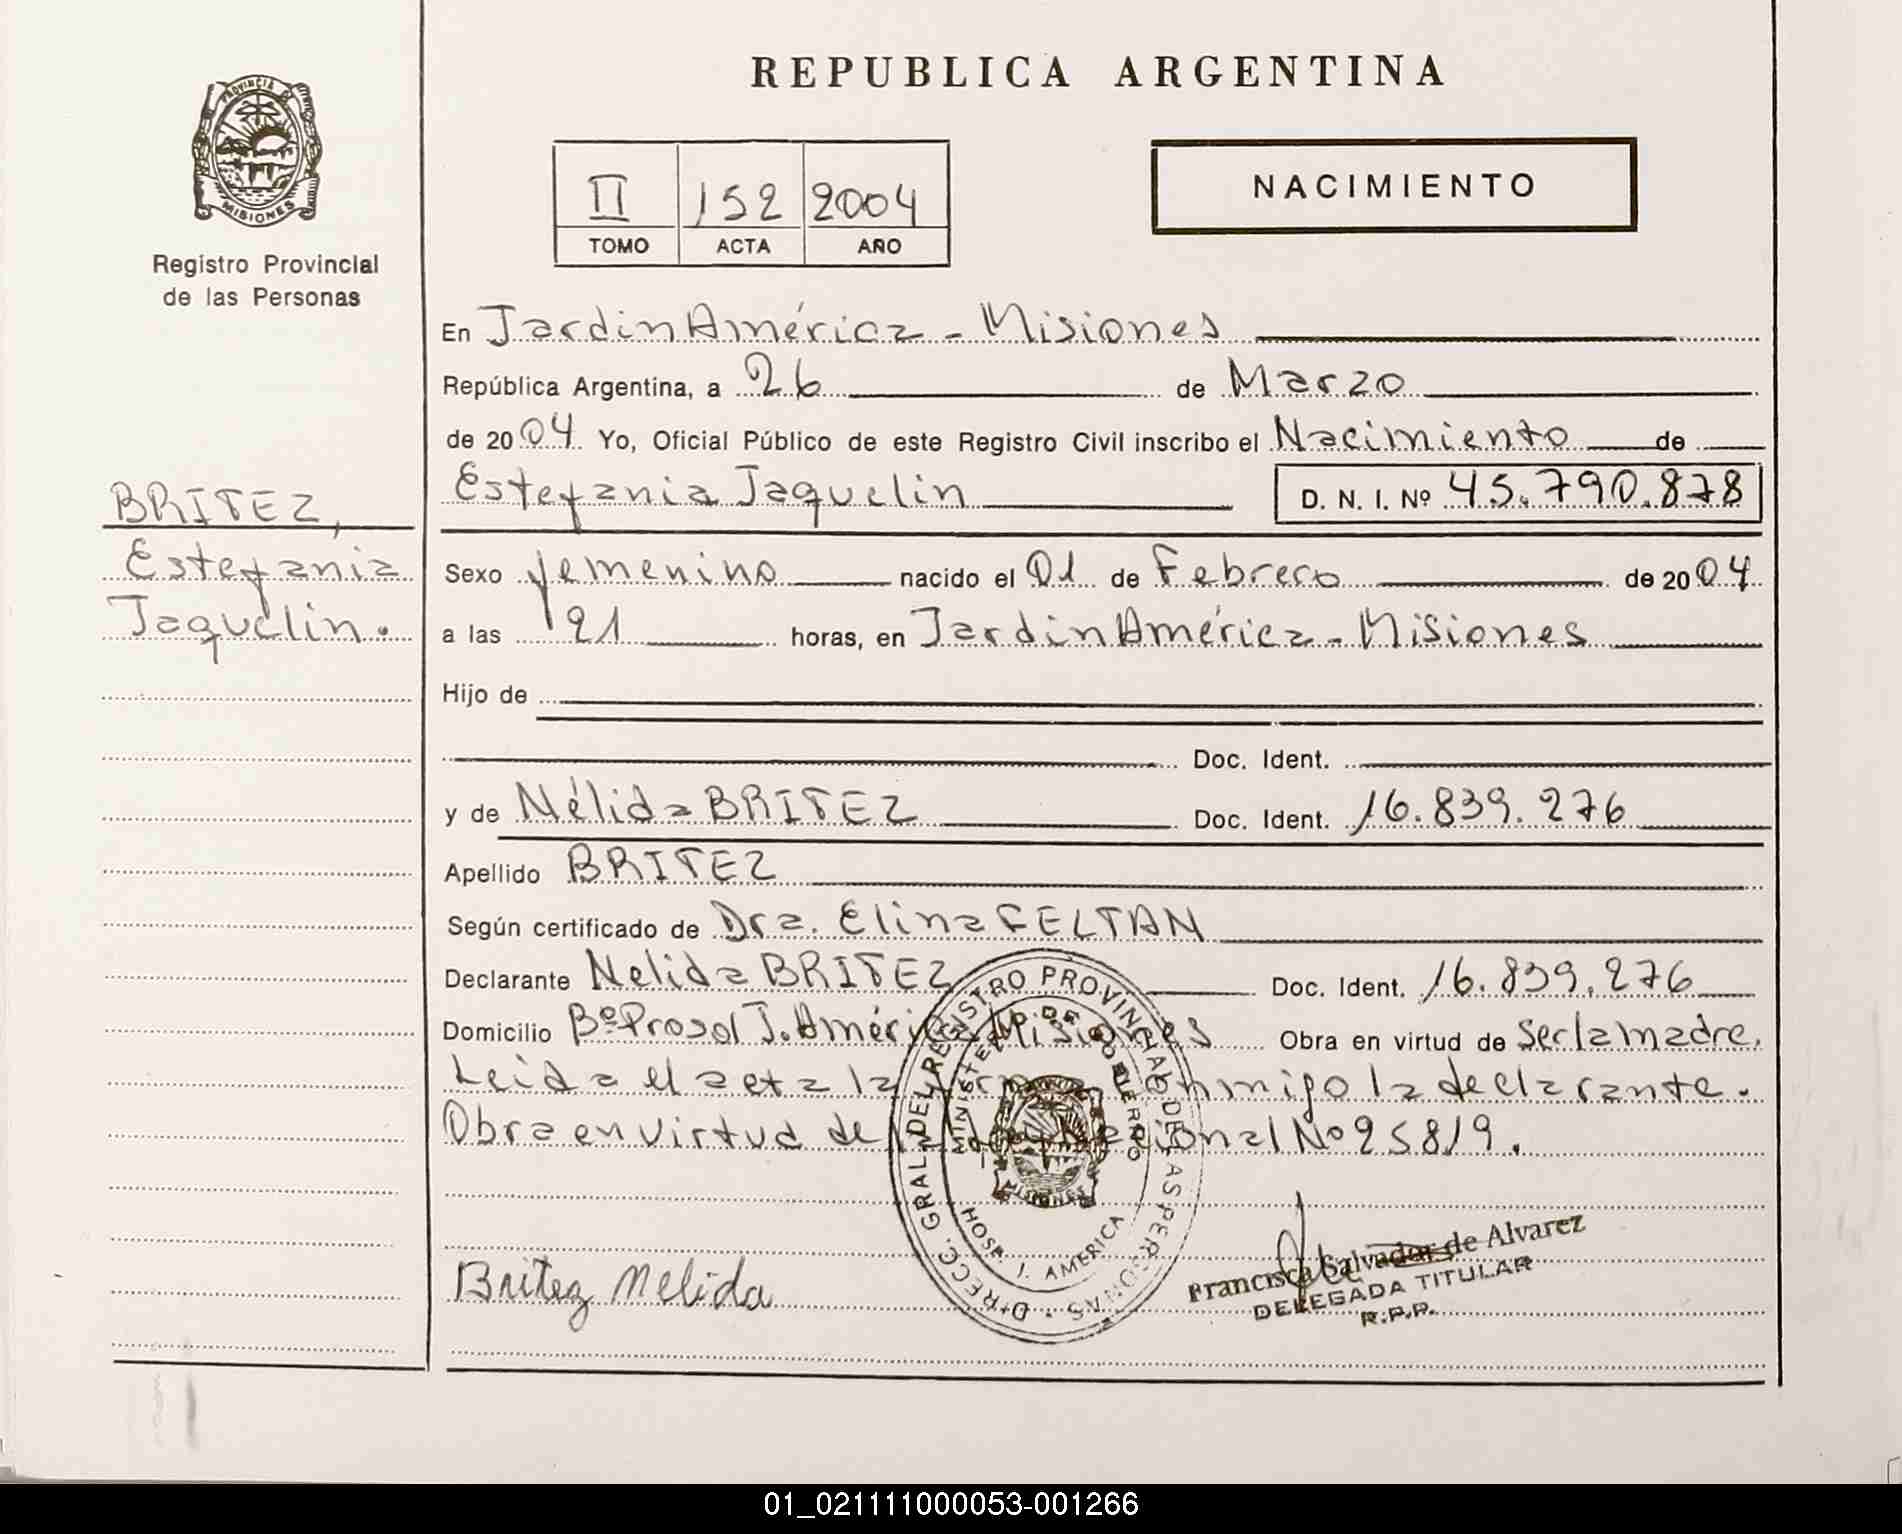 REPUBLICA ARGENTINA
PROVINCIA DE
MISIONES
Registro Provincial
de las Personas
II 152 2004
TOMO ACTA AÑO
NACIMIENTO
En Jardin América - Misiones
República Argentina, a 26 de Marzo
de 2004 Yo, Oficial Público de este Registro Civil inscribo el Nacimiento de
Estefania Jaquelin D. N. I. Nº 45.790.878
BRITEZ,
Estefania
Jaquelin.
Sexo femenino nacido el 01 de Febrero de 2004
a las 21 horas, en Jardin América - Misiones
Hijo de
Doc. Ident.
y de Nélida BRITEZ Doc. Ident. 16.839.276
Apellido BRITEZ
Según certificado de Dra. Elina FELTAN
Declarante Nelida BRITEZ Doc. Ident. 16.839.276
Domicilio Bº Prosol J. América Misiones Obra en virtud de Ser la madre.
Leida el acta la conmigo la declarante.
Obra en virtud de Nacional No 25819.
DIRECC. GRAL. DEL REGISTRO PROVINCIAL DE LAS PERSONAS
MINISTERIO DE GOBIERNO
MISIONES
HOSP. J. AMERICA
Britez Nelida
Francisca Salvador de Alvarez
DELEGADA TITULAR
R.P.P.
01_021111000053-001266